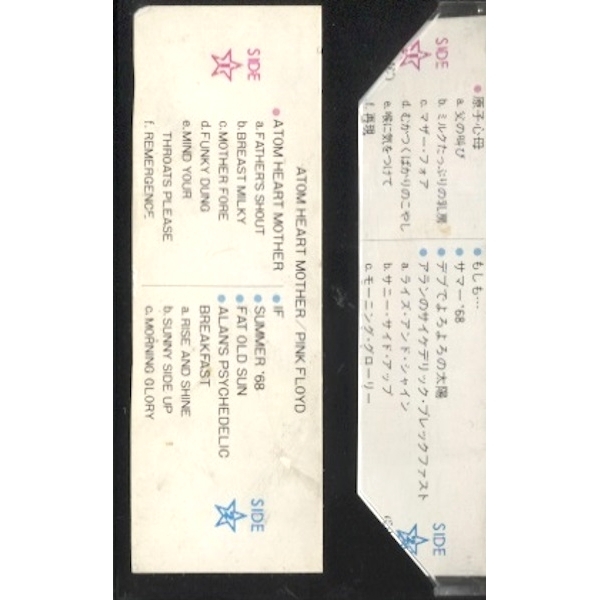 ATOM HEART MOTHER / PINK FLOYD
SIDE
1
ATOM HEART MOTHER
a. FATHER'S SHOUT
b. BREAST MILKY
c. MOTHER FORE
d. FUNKY DUNG
e. MIND YOUR
THROATS PLEASE
f. REMERGENCE
IF
SUMMER '68
FAT OLD SUN
ALAN'S PSYCHEDELIC
BREAKFAST
a. RISE AND SHINE
b. SUNNY SIDE UP
c. MORNING GLORY
SIDE
2
SIDE
1
原子心母
a. 父の叫び
b. ミルクたっぷりの乳房
c. マザー・フォア
d. むかつくばかりのこやし
e. 喉に気をつけて
f. 再現
もしも…
サマー'68
デブでよろよろの太陽
アランのサイケデリック・ブレックファスト
a. ライズ・アンド・シャイン
b. サニー・サイド・アップ
c. モーニング・グローリー
SIDE
2